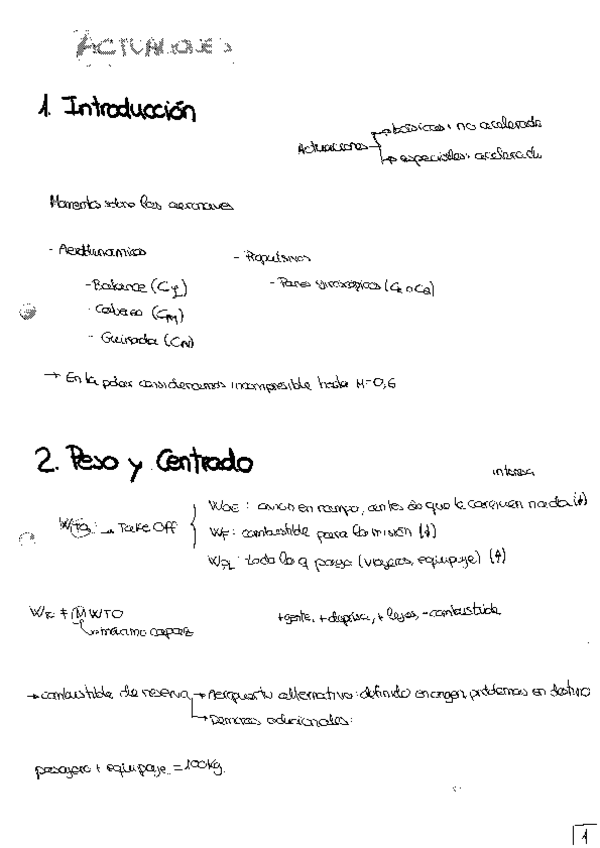 ACTUACIONES
1. Introducción
Actuaciones → básicas: no acelerada
→ especiales: acelerada
Momentos sobre las aeronaves
- Aerodinámicos
- Propulsivos
- Balance (C
- Pares giroscópicos
- Cabeceo (CM)
- Guiñada (CN)
→ En la polar consideramos incompresible hasta M=0,6
2. Peso y Centrado
interesa
WTO: → Take Off
WOE: avion en rampa, antes de que le carguen nada (↓)
WF: combustible para la misión (↓)
WPL: todo lo q paga (viajeros, equipaje) (↑)
MWTO
→ máximo
+gente, +deprisa, + lejos, -combustible
→ combustible de reserva → Aeropuerto alternativo: definido en origen, problemas en destino
→ Demoras adicionales:
pasajero + equipaje = 100kg.
1